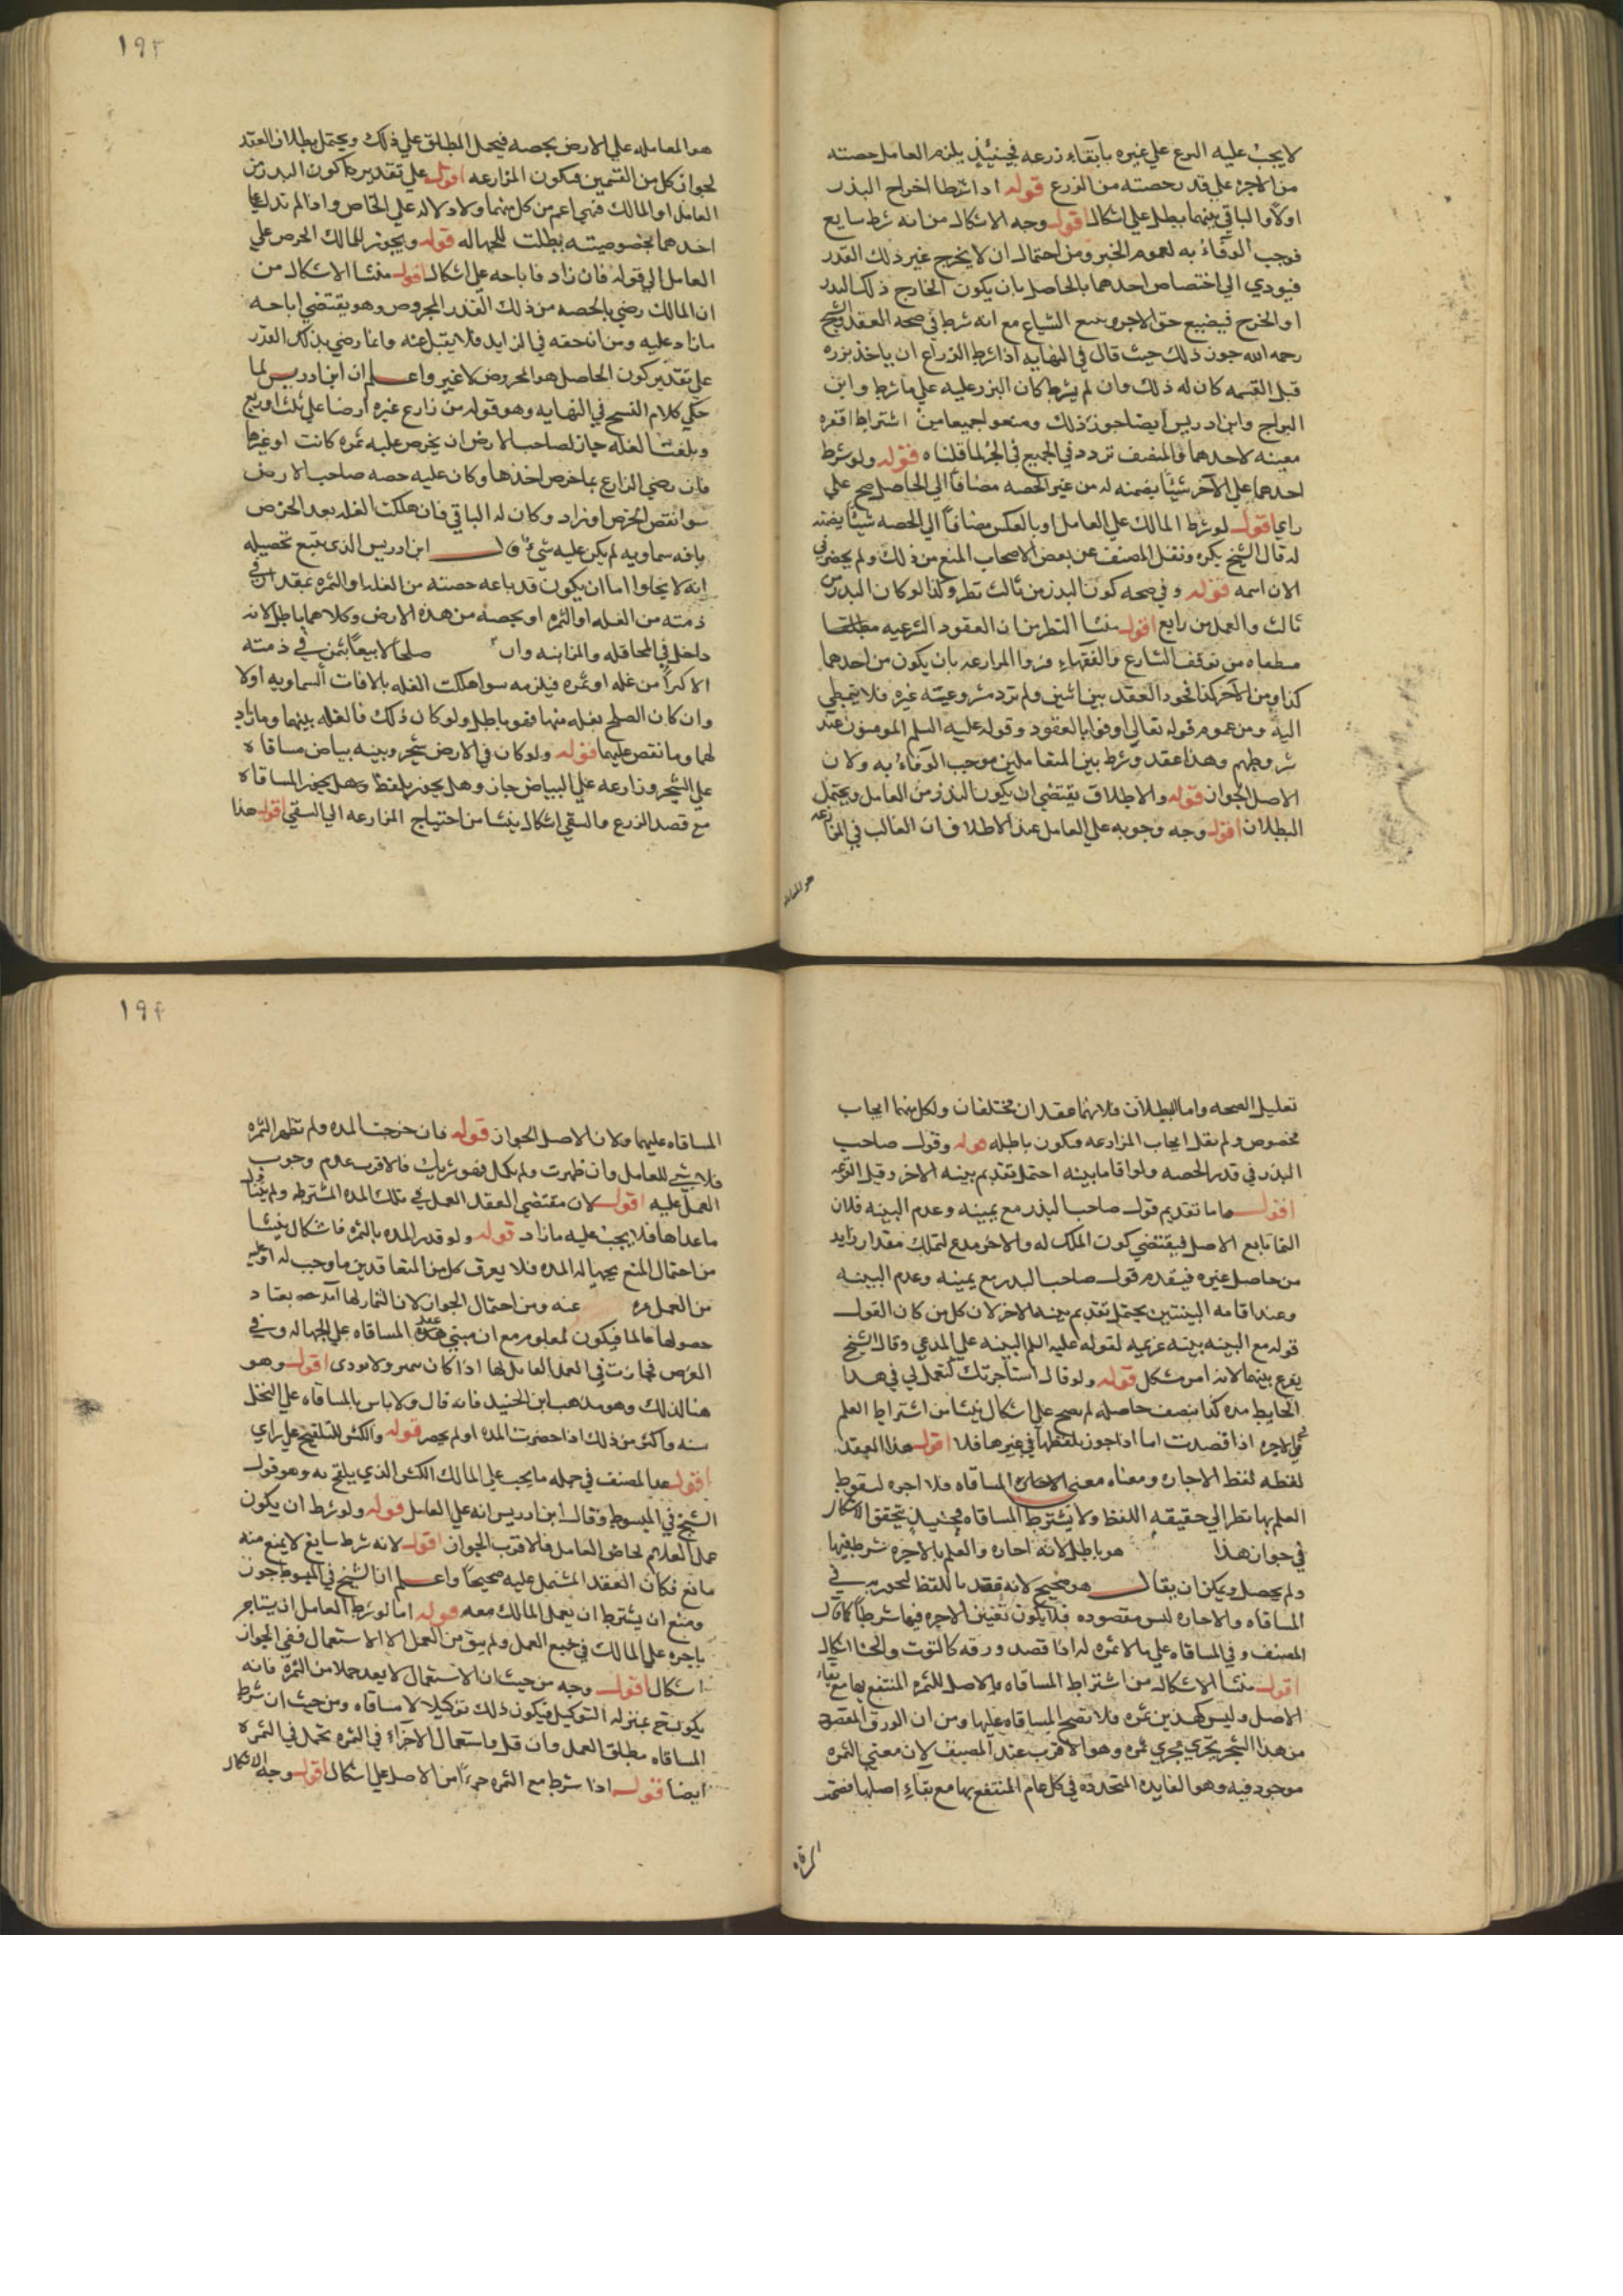 لا يجب عليه الزرع على غيره بابقاء زرعه فحينئذ يلزم العامل حصته
من الاجره على قدر حصته من الزرع قوله اذا شرطا اخراج البذر
اولا والباقي بينهما بطل على اشكال اقول وجه الاشكال من انه شرط سايغ
فوجب الوفاء به لعموم الخبر ومن احتمال ان لا يخرج غير ذلك القدر
فيودي الى اختصاص احدهما بالحاصل بان يكون الخارج ذلك البذر
او الخرج فيضيع حق الاخر ويمنع الشياع مع انه شرط في صحه العقد والشيخ
رحمه الله جوز ذلك حيث قال في النهايه اذا شرط الزراع ان ياخذ بزره
قبل القسمه كان له ذلك وان لم يشرط كان البزر عليه على ما شرط وابن
البراج وابن ادريس ايضا جوز ذلك ومنعوا جميعا من اشتراط اقفزه
معينه لاحدهما فالمصنف تردد في الجميع في الجزء لما قلناه قوله ولو شرط
احدهما على الآخر شيئا يضمنه له من غير الحصه مضافا الى الحاصل صح على
راي اقول لو شرط المالك على العامل او بالعكس مضافا الى الحصه شيئا يضمنه
له قال الشيخ يكره ونقل المصنف عن بعض الاصحاب المنع من ذلك ولم يحضرني
الان اسمه قوله وفي صحه كون البذر من ثالث نظر وكذا لو كان البذر من
ثالث والعمل من رابع اقول منشا النظر من ان العقود الشرعيه
متلقاه من توقيف الشارع والفقهاء فسروا المزارعه بان يكون من احدهما
كذا ومن الآخر كذا فحدد العقد بين اثنين ولم ترد مشروعيته غيره فلا يتخطى
اليه ومن عموم قوله تعالى اوفوا بالعقود وقوله عليه السلم المومنون عند
شروطهم وهذا عقد وشرط بين المتعاملين فوجب الوفاء به ولان
الاصل الجواز قوله والاطلاق يقتضي ان يكون البذر من العامل ويحتمل
البطلان اقول وجه وجوبه على العامل عند الاطلاق ان الغالب في المزارعه
١٩٣
هو المعامله على الارض بحصه فيحمل المطلق على ذلك ويحتمل بطلان العقد
لجواز كل من القسمين فيكون المزارعه اقول على تقدير ما كون البذر من
العامل او المالك فهي اعم من كل منهما ولا دلاله على الخاص واذا لم تدل على
احدهما بخصوصيته بطلت للجهاله قوله ويجوز للمالك الخرص على
العامل الى قوله فان زاد فاباحه على اشكال اقول منشا الاشكال من
ان المالك رضي بالحصه من ذلك القدر المخروص وهو يقتضي اباحه
ما زاد عليه ومن ان حقه في الزايد فلا ينتقل عنه وانما رضي بذلك القدر
على تقدير كون الحاصل هو المخروض لا غير واعلم ان ابن ادريس لما
حكى كلام الشيخ في النهايه وهو قوله من زارع غيره ارضا على ثلث او ربع
وبلغت الغله جاز لصاحب الارض ان يخرص عليه ثمره كانت او غيرها
فان رضي الزارع بما خرص اخذها وكان عليه حصه صاحب الارض
سوا نقص الخرص او زاد وكان له الباقي فان هلكت الغله بعد الخرص
بافه سماويه لم يكن عليه شيء قال ابن ادريس الذي ينبغ تحصيله
انه لا يخلوا اما ان يكون قد باعه حصته من الغله او الثمره بمقدار في
ذمته من الغله او الثمره او بحصه من هذه الارض وكلاهما باطل لانه
داخل في المحاقله والمزابنه وان صلحا لا بيعا بثمن في ذمته
الاكرا من غله او ثمره فيلزمه سوا هلكت الغله بالافات السماويه اولا
وان كان الصلح بغله منها فهو باطل ولو كان ذلك فالغله بينهما وما زاد
لهما وما نقص عليهما قوله ولو كان في الارض شجر وبينه بياض مساقاه
على الشجر وزارعه على البياض جاز وهل يجوز بلفظ وهل يجوز المساقاه
مع قصد الزرع والسقي اشكال ينشا من احتياج المزارعه الى السقي اقول هذا
تعليل الصحه واما البطلان فلانهما عقدان مختلفان ولكل منهما ايجاب
مخصوص ولم نقل ايجاب المزارعه فيكون باطله قوله وقول صاحب
البذر في قدر الحصه ولو اقاما بينه احتمل تقديم بينه الاخر وقيل القرعه
اقول اما تقديم قول صاحب البذر مع يمينه وعدم البينه فلان
النما تابع الاصل فيقتضي كون الملك له والاخر مدع لتملك مقدار زايد
من حاصل غيره فيقدم قول صاحب البذر مع يمينه وعدم البينه
وعند اقامه البينتين يحتمل تقديم بينه الاخر لان كل من كان القول
قوله مع البينه بينه غريمه لقوله عليه السلم البينه على المدعي وقال الشيخ
يقرع بينهما لانه امر مشكل قوله ولو قال استاجرتك لتعمل لي في هذا
الحايط مده كذا بنصف حاصله لم يصح على اشكال ينشا من اشتراط العلم
في الاجره اذا قصدت اما اذا جوز بلفظها في غيرها فلا اقول هذا العقد
لفظه لفظ الاجاره ومعناه معنى المساقاه فلا اجره لسقوط
العلم بها نظر الى حقيقه اللفظ ولا يشترط المساقاه فحينئذ يتحقق الاشكال
في جواز هذا هو باطل لانه اجاره والعلم بالاجره شرط فيها
ولم يحصل ويمكن ان يقال هو صحيح لانه عقد باللفظ المجوز به في
المساقاه والاجاره ليس مقصوده فلا يكون تعيين الاجره فيها شرطا كما قال
المصنف وفي المساقاه على ما لا ثمره له اذا قصد ورقه كالتوت والحنا اشكال
اقول منشا الاشكال من اشتراط المساقاه بالاصل للثمره المنتفع بها مع بقاء
الاصل وليس كهذين ثمره فلا تصح المساقاه عليها ومن ان الورق المقصود
من هذا الشجر يجري مجرى ثمره وهو الاقرب عند المصنف لان معنى الثمره
موجود فيه وهو الفايده المتجدده في كل عام المنتفع بها مع بقاء اصلها فصحت
١٩٤
المساقاه عليها ولان الاصل الجواز قوله فان خرجت المده ولم تظهر الثمره
فلا شي للعامل وان ظهرت ولم يكمل فهو شريك فالاقرب عدم وجوب
العمل عليه اقول لان مقتضى العقد العمل في تلك المده المشترطه ولم يتناول
ما عداها فلا يجب عليه ما زاد قوله ولو قدر المده بالثمره فاشكال ينشا
من احتمال المنع بجهاله المده فلا يعرف كل من المتعاقدين ما وجب له او عليه
من العمل عنه ومن احتمال الجواز لان الثمار لها يعتاد
حصولها غالبا فيكون كمعلوم مع ان مبنى عقد المساقاه على الجهاله وفي
العمل العامل لها اذا كان اقول وهو
هنا كذلك وهو مذهب ابن الجنيد فانه قال ولا باس بالمساقاه على النخل
سنه واكثر من ذلك اذا حضرت المده او لم يحصر قوله والكش للتلقيح على راي
اقول عد المصنف في جمله ما يجب على المالك الكش الذي يلقح به وهو قول
الشيخ في المبسوط وقال ابن ادريس انه على العامل قوله ولو شرط ان يكون
عمل الغلام لخاص العامل فالاقرب الجواز اقول لانه شرط سايغ لا يمنع منه
مانع فكان العقد المشتمل عليه صحيحا واعلم ان الشيخ في المبسوط جوز
ومنع ان يشترط ان يعمل المالك معه قوله اما لو شرط العامل ان يستاجر
باجره على المالك في جميع العمل ولم يبق من العمل الا الاستعمال ففي الجواز
اشكال اقول وجه من حيث ان الاستعمال لا يعد عملا من الثمره فانه
يكون بمنزله التوكيل فيكون ذلك توكيلا لا مساقاه ومن حيث ان شرط
المساقاه مطلق العمل وان قل فاستعمال الاجراء في الثمره عمل في الثمره
ايضا قوله اذا شرط مع الثمره جزءا من الاصل على اشكال اقول وجه الاشكال